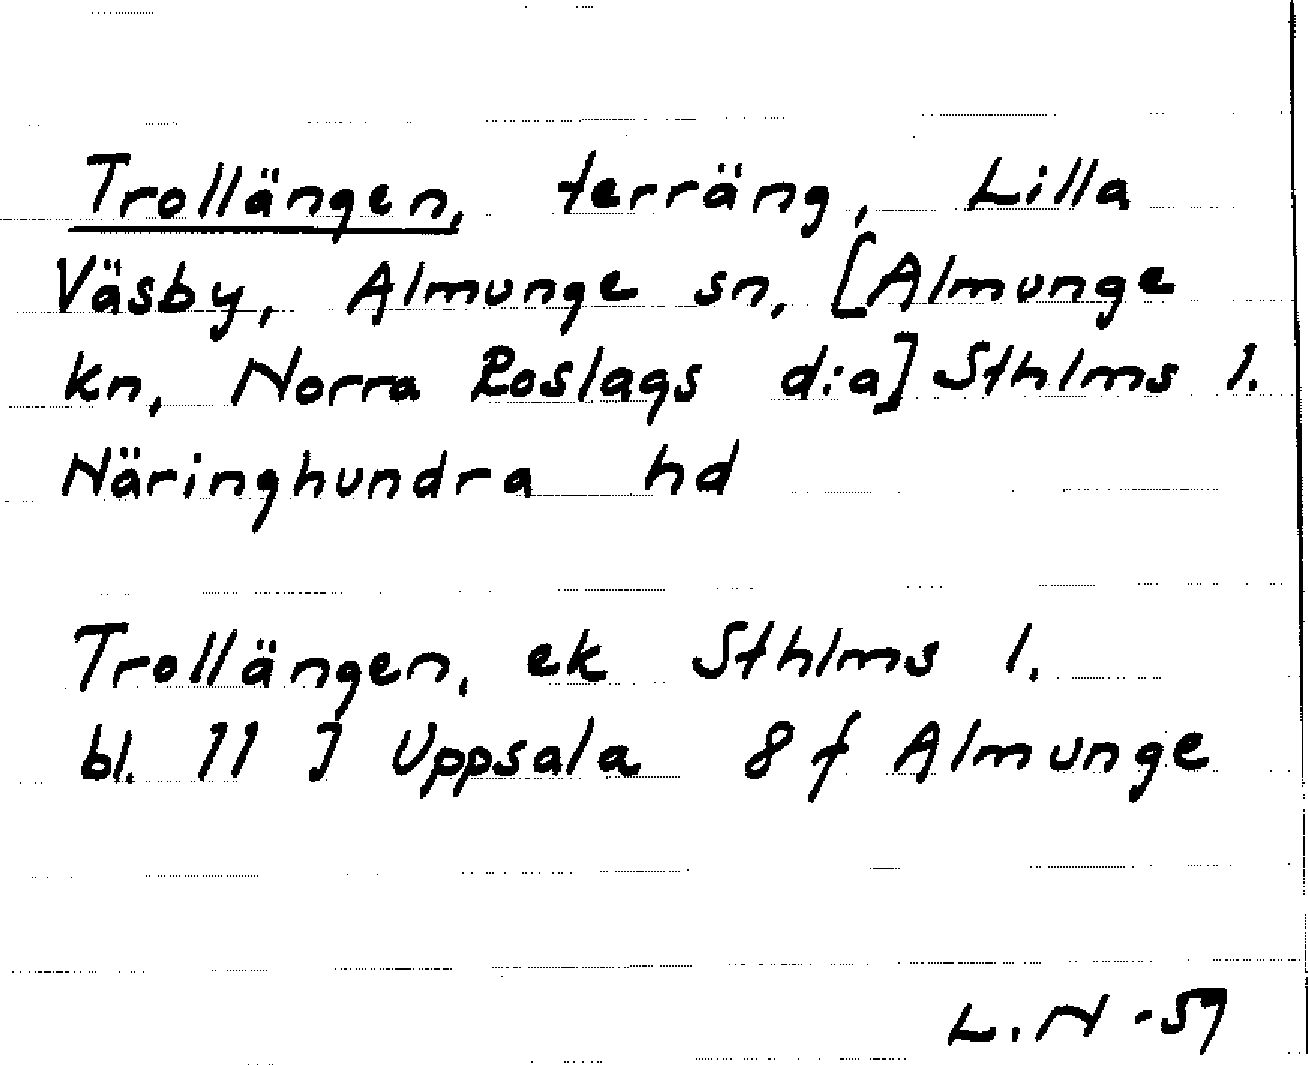 Trollängen, terräng, Lilla
Väsby, Almunge sn, [Almunge
kn, Norra Roslags d:a] Sthlms l.
Näringhundra hd
Trollängen, ek Sthlms l.
bl. 11 J Uppsala 8 f Almunge
L.N -59